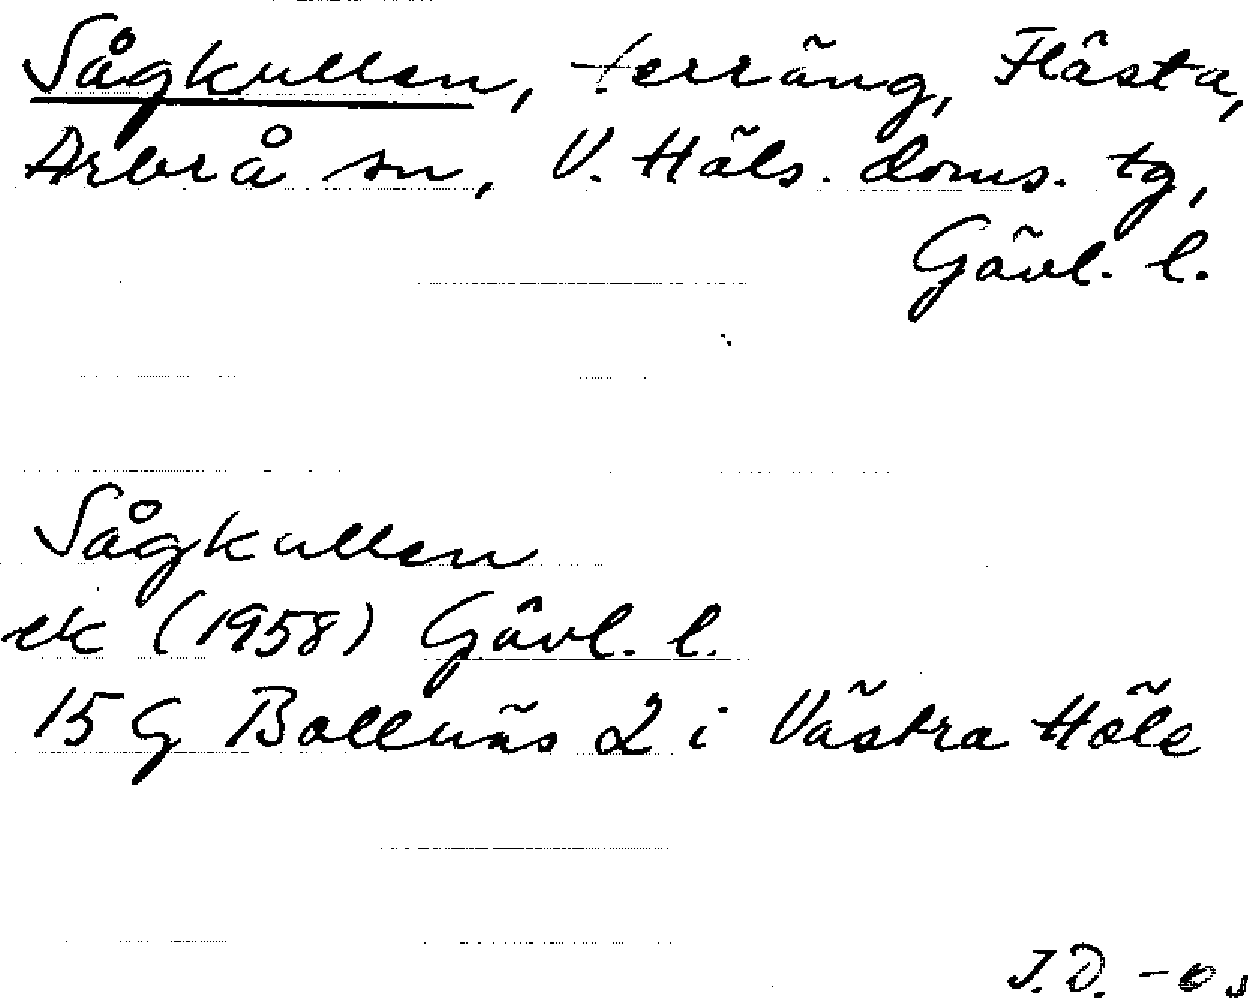 Sågkullen, terräng, Flästa,
Arbrå sn, V. Häls. doms. tg,
Gävl. l.
Sågkullen
ek (1958) Gävl. l.
15 G Bollnäs 2 i Västra Häls
J.D. -os